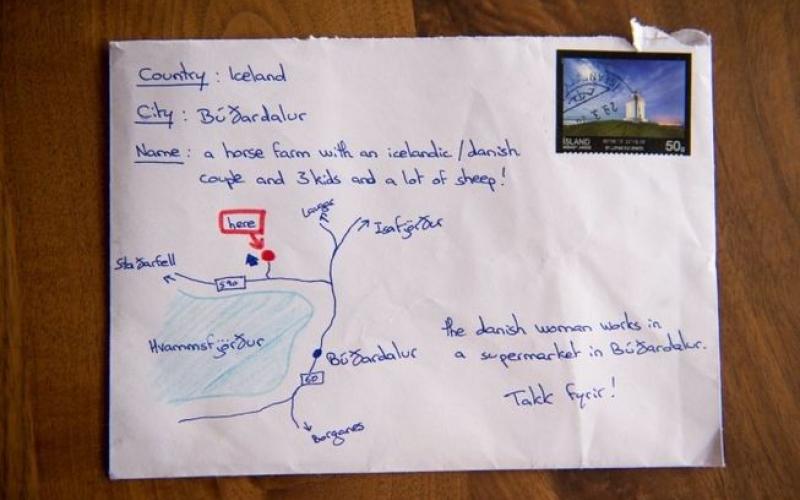 Country : Iceland
City : Búðardalur
Name : a horse farm with an icelandic / danish
couple and 3 kids and a lot of sheep!
ÍSLAND
50g
here
Laugar
Ísafjörður
Staðarfell
590
Hvammsfjörður
Búðardalur
60
Borganes
the danish woman works in
a supermarket in Búðardalur.
Takk fyrir!